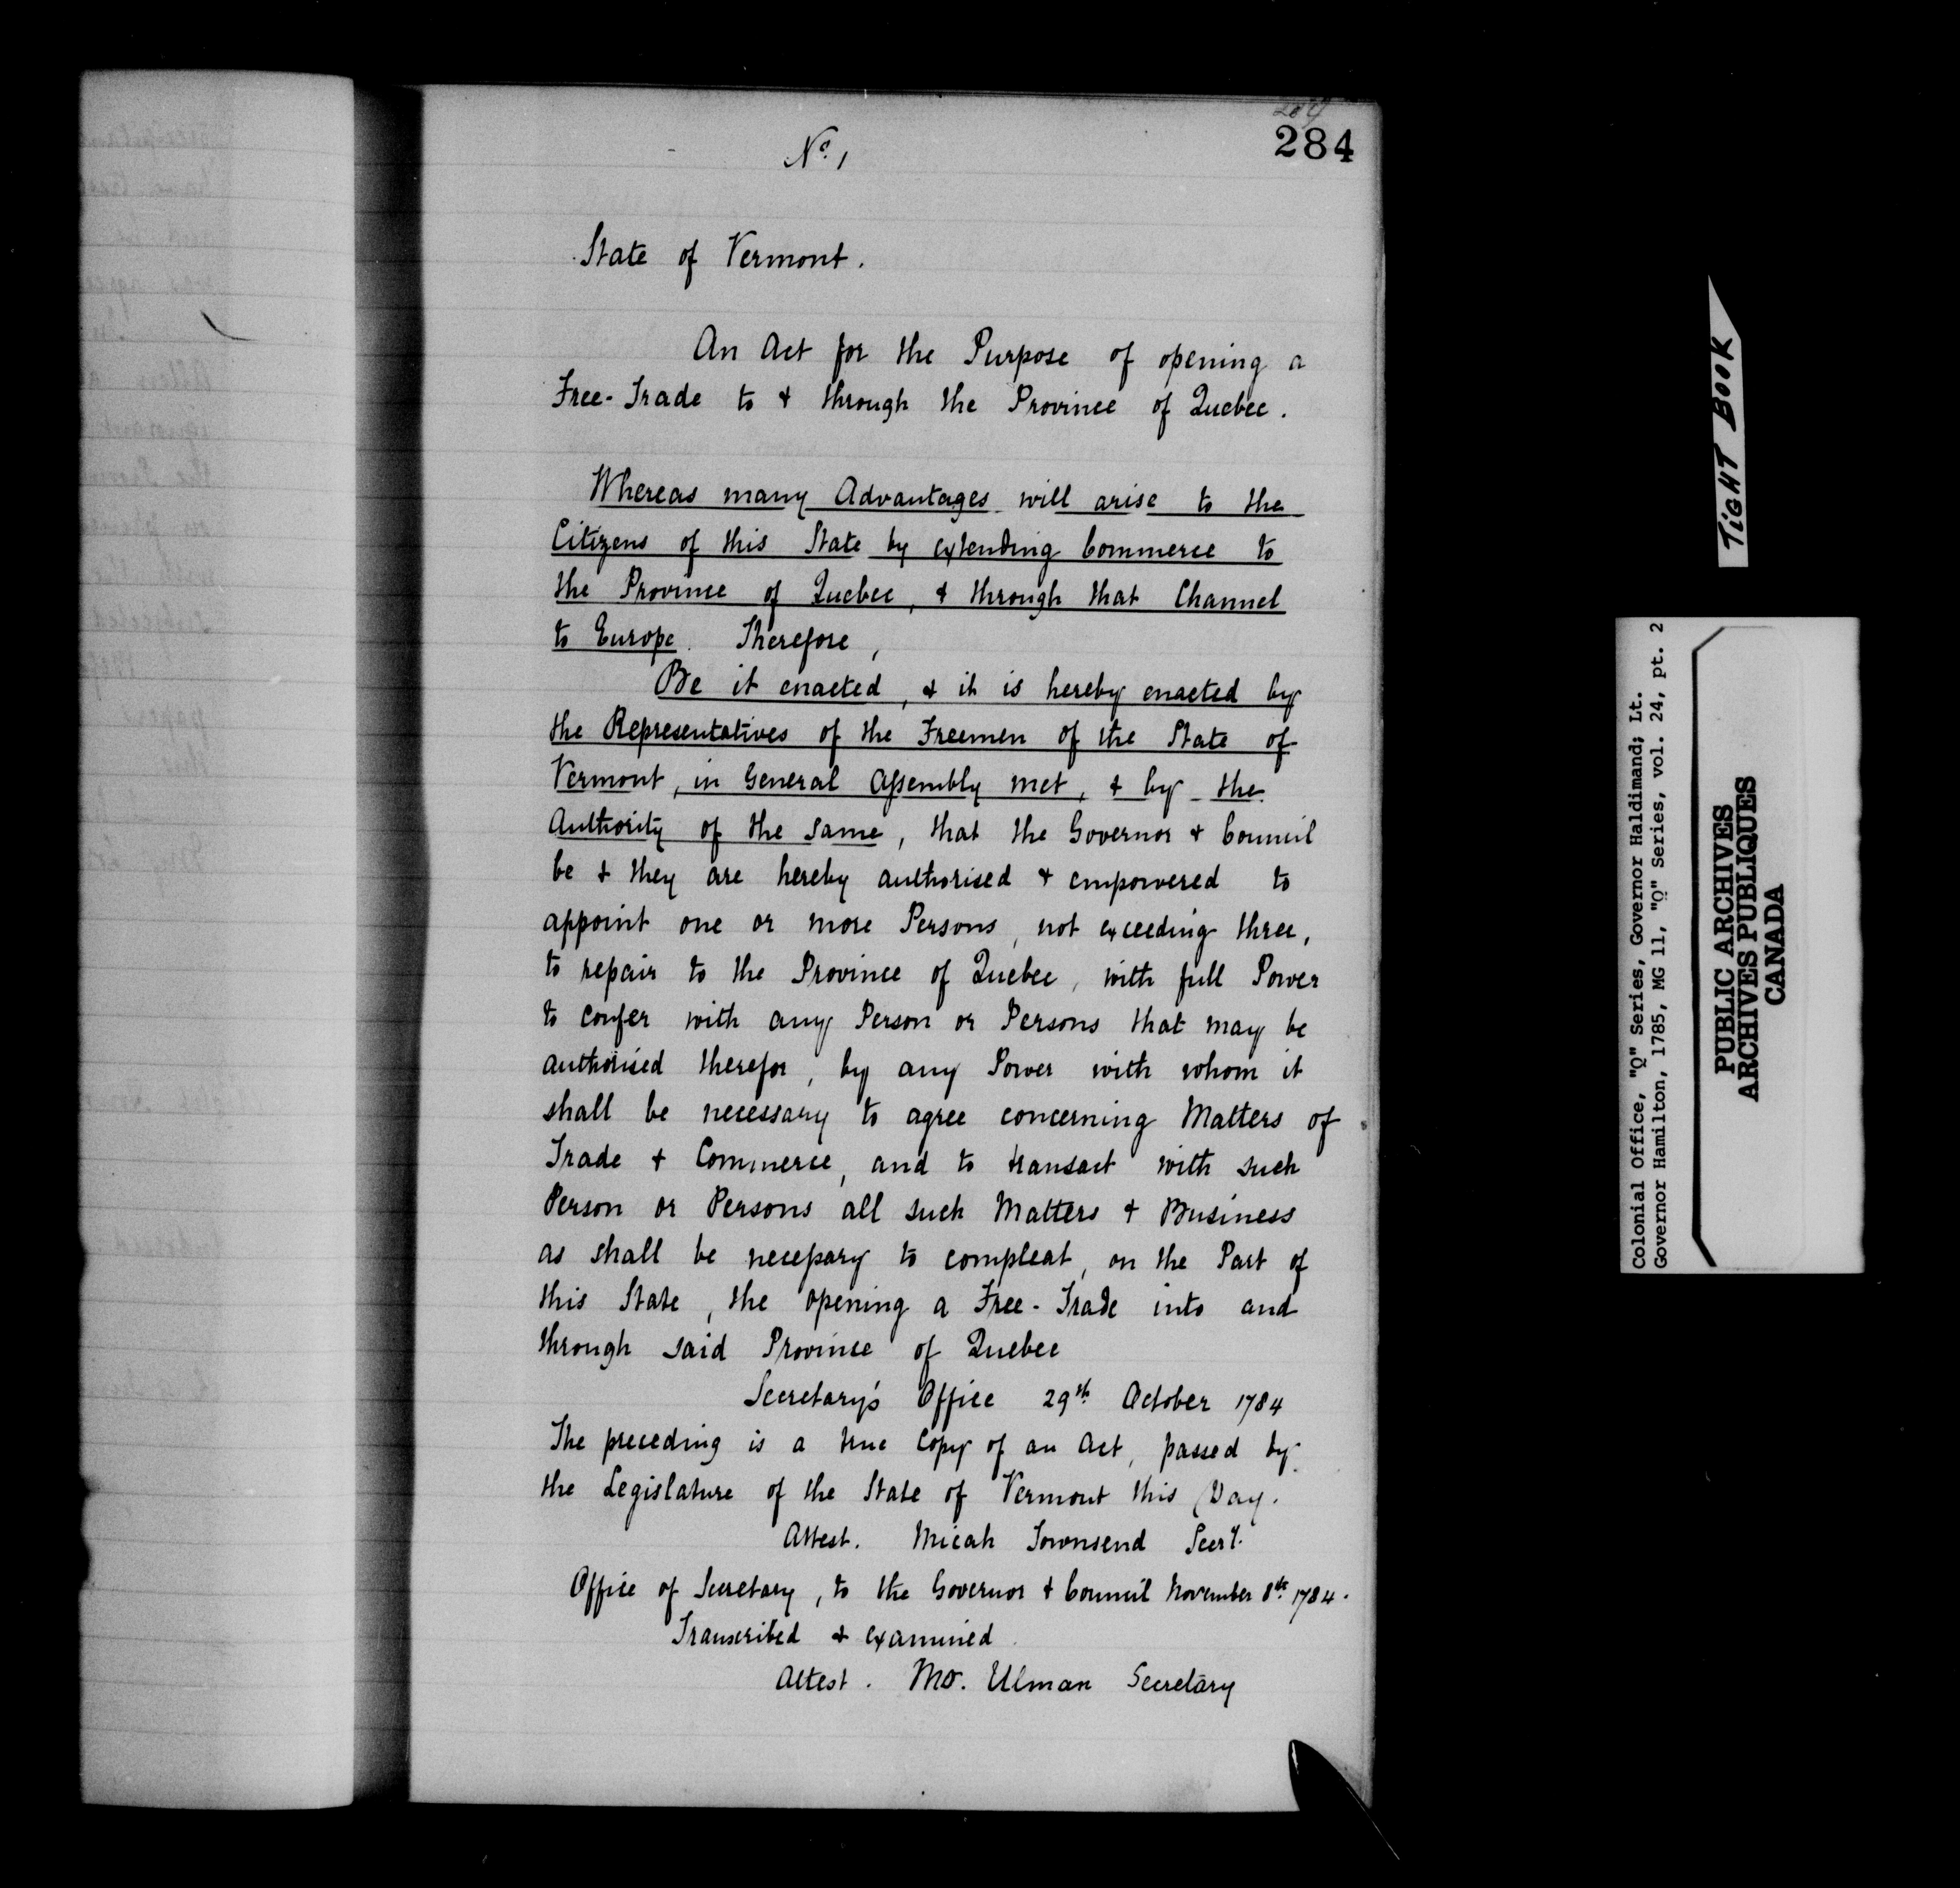 284
No. 1
State of Vermont.
An Act for the Purpose of opening a
Free-Trade to & through the Province of Quebec.
Whereas many Advantages will arise to the
Citizens of this State by extending Commerce to
the Province of Quebec, & through that Channel
to Europe. Therefore,
Be it enacted, & it is hereby enacted by
the Representatives of the Freemen of the State of
Vermont, in General Assembly met, & by the
Authority of the same, that the Governor & Council
be & they are hereby authorised & empowered to
appoint one or more Persons, not exceeding three,
to repair to the Province of Quebec, with full Power
to confer with any Person or Persons that may be
authorised therefor, by any Power with whom it
shall be necessary to agree concerning Matters of
Trade & Commerce, and to transact with such
Person or Persons all such Matters & Business
as shall be necessary to compleat, on the Part of
this State, the opening a Free-Trade into and
through said Province of Quebec
Secretary's Office 29th October 1784
The preceding is a true Copy of an Act, passed by
the Legislature of the State of Vermont this Day.
Attest. Micah Townsend Secry.
Office of Secretary, to the Governor & Council November 8th 1784.
Transcribed & examined.
Attest. Mo. Ulman Secretary
TIGHT BOOK
Colonial Office, "Q" Series, Governor Haldimand; Lt.
Governor Hamilton, 1785, MG 11, "Q" Series, vol. 24, pt. 2
PUBLIC ARCHIVES
ARCHIVES PUBLIQUES
CANADA